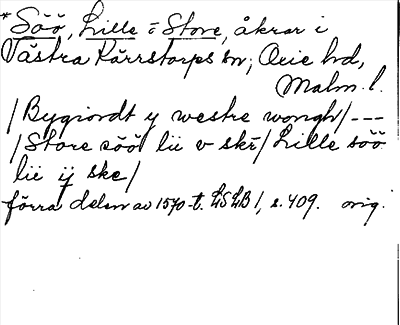 *Söö, Lille o Store, åkrar i
Västra Kärrstorps sn, Oxie hd,
Malm. l.
/Bygiordt y westre wongh/---
/Store söö lii v skr/Lille söö
lii ij ske/
förra delen av 1570-t. LSLB 1, s. 409. orig.